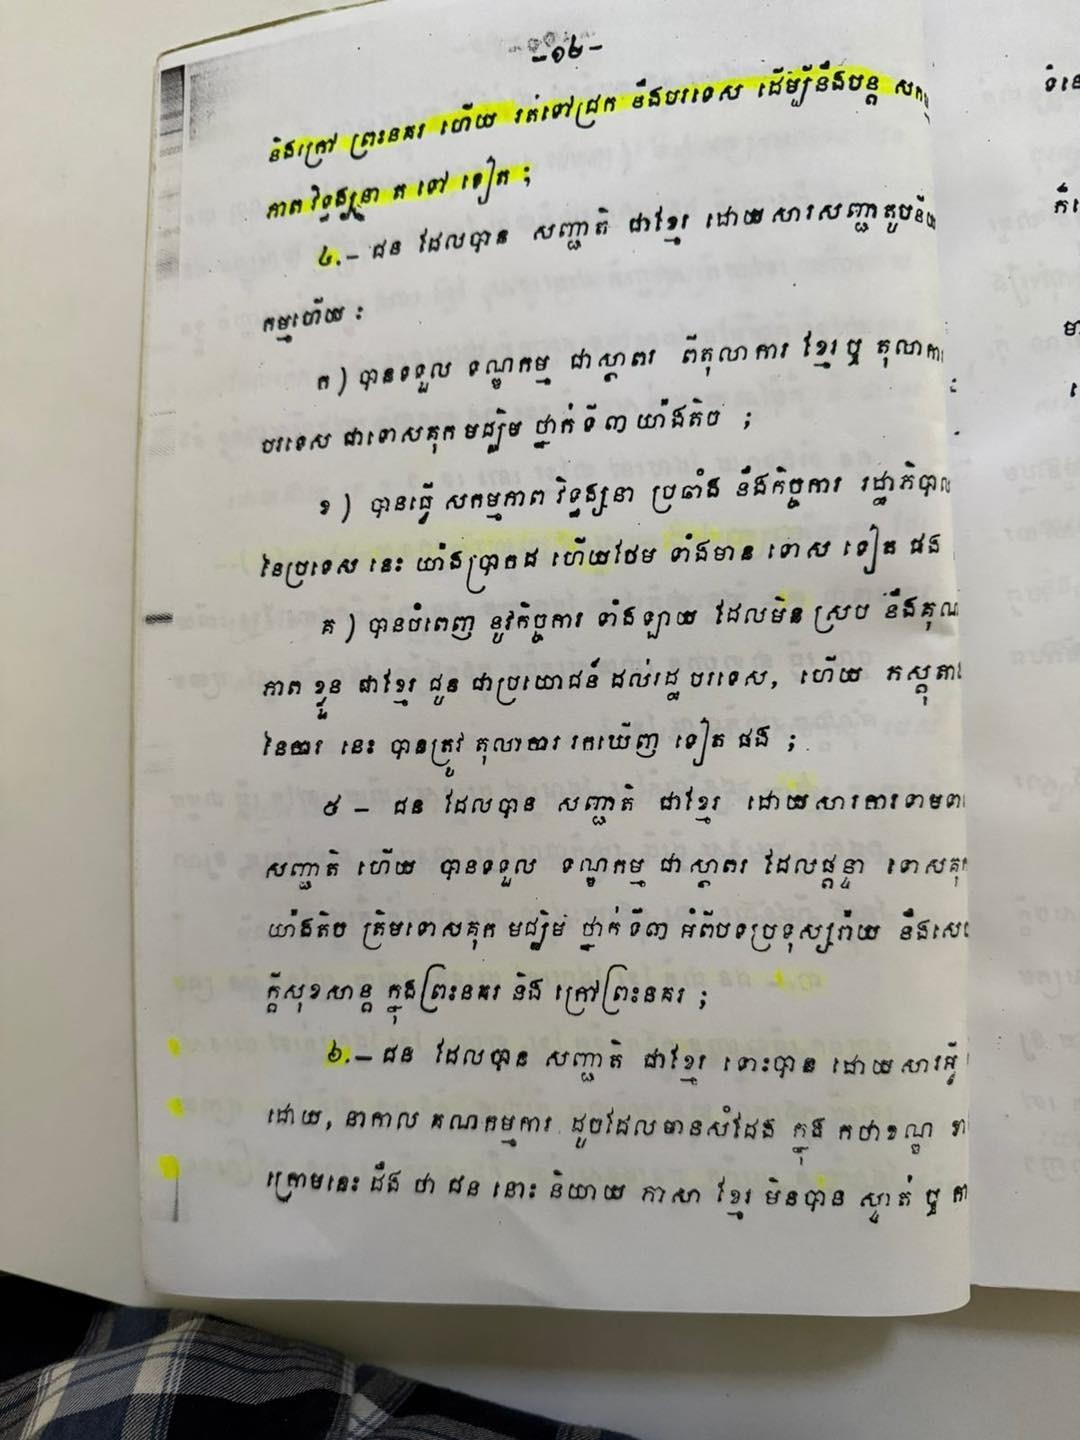 -១៤-
និងក្រៅ ព្រះនគរ ហើយ រត់ទៅជ្រក នឹងបរទេស ដើម្បីនឹងបន្ត សកម្ម
ភាព វិទ្ធង្សនា ត ទៅ ទៀត ;
៤.- ជន ដែលបាន សញ្ជាតិ ជាខ្មែរ ដោយសារសញ្ជាតូបនីយ
កម្មហើយ :
ក ) បានទទួល ទណ្ឌកម្ម ជាស្ថាពរ ពីតុលាការ ខ្មែរឬ តុលាការ
បរទេស ជាទោសគុកមជ្ឈិម ថ្នាក់ទី៣ យ៉ាងតិច ;
ខ ) បានធ្វើ សកម្មភាព វិទ្ធង្សនា ប្រឆាំង នឹងកិច្ចការ រដ្ឋាភិបាល
នៃប្រទេស នេះ យ៉ាងប្រាកដ ហើយថែម ទាំងមាន ទោស ទៀត ផង
គ ) បានបំពេញ នូវកិច្ចការ ទាំងឡាយ ដែលមិន ស្រប នឹងគុណ
ភាព ខ្លួន ជាខ្មែរ ជូន ជាប្រយោជន៍ ដល់រដ្ឋ បរទេស, ហើយ ភស្តុតាង
នៃការ នេះ បានត្រូវ តុលាការ រកឃើញ ទៀត ផង ;
៥ - ជន ដែលបាន សញ្ជាតិ ជាខ្មែរ ដោយសារការទាមទារ
សញ្ជាតិ ហើយ បានទទួល ទណ្ឌកម្ម ជាស្ថាពរ ដែលផ្តន្ទា ទោសគុក
យ៉ាងតិច ត្រឹមទោសគុក មជ្ឈិម ថ្នាក់ទី៣ អំពីបទប្រទុស្សរ៉ាយ នឹងសេច
ក្តីសុខសាន្ត ក្នុងព្រះនគរ និង ក្រៅព្រះនគរ ;
៦.- ជន ដែលបាន សញ្ជាតិ ជាខ្មែរ ទោះបាន ដោយសារអ្វី
ដោយ, នាកាល គណកម្មការ ដូចដែលមានសំដែង ក្នុង កថាខណ្ឌ ខាង
ក្រោមនេះ ដឹង ថា ជន នោះ និយាយ ភាសា ខ្មែរ មិនបាន ស្ទាត់ ឬ